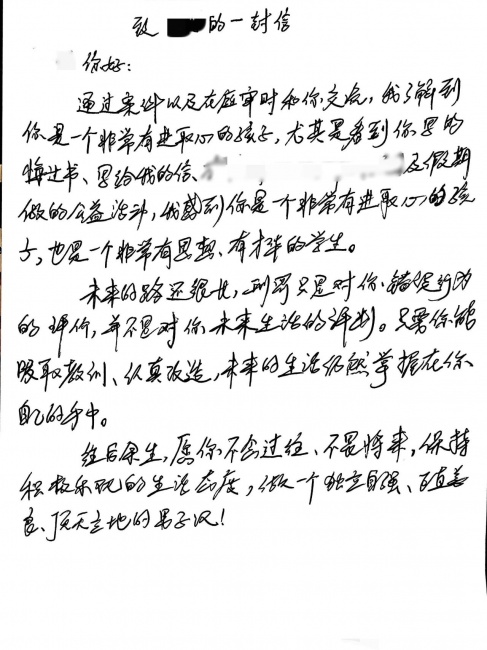 致 的一封信
你好：
通过案件以及在庭审时和你交流，我了解到
你是一个非常有进取心的孩子，尤其是看到你写的
悔过书、写给我的信、 及假期
做的公益活动，我感到你是一个非常有进取心的孩
子，也是一个非常有思想、有才华的学生。
未来的路还很长，刑罚只是对你错误行为
的评价，并不是对你未来生活的评判。只要你能
吸取教训、认真改造，未来的生活仍然掌握在你
自己的手中。
往后余生，愿你不念过往、不畏将来，保持
积极乐观的生活态度，做一个独立自强、正直善
良、顶天立地的男子汉！